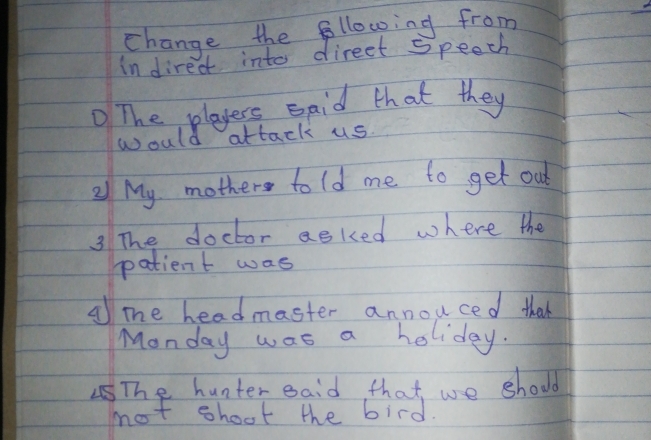 Change the following from
indirect into direct Speech
1) The players said that they
would attack us.
2) My mother told me to get out
3 The doctor asked where the
patient was
4) The headmaster annouced that
Monday was a holiday.
5 The hunter said that we should
not shoot the bird.